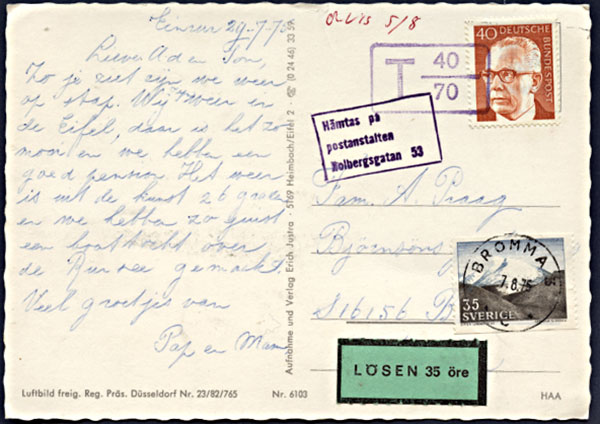 Einrur 29-7-75
Lieve Ad en Ton,
Zo je ziet zijn we weer
op stap. Wij weer in
de Eifel, daar is het zo
mooi en we hebben een
goed pension. Het weer
is uit de kunst 26 graden
en we hebben zo juist
een boottocht over
de Rursee gemaakt.
Veel groetjes van
Pap en Mam
Luftbild freig. Reg. Präs. Düsseldorf Nr. 23/82/765
Nr. 6103
HAA
Aufnahme und Verlag Erich Justra · 5169 Heimbach/Eifel 2 · ☎ (0 24 46) 33 59
5/8
T 40
70
40 DEUTSCHE
BUNDESPOST
Hämtas på
postanstalten
Kolbergsgatan 53
Fam. A. Praag
Björnsons
S16156
BROMMA
7.8.75
35
SVERIGE
LÖSEN 35 öre